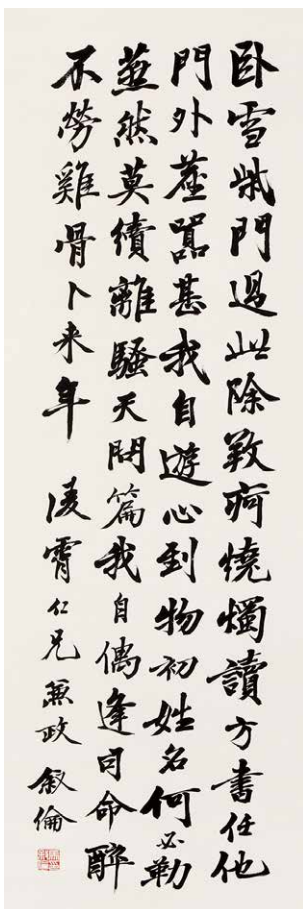 卧雪柴門過此除養疴燒燭讀方書任他
門外塵囂甚我自遊心到物初姓名何必勒
燕然莫續離騷天問篇我自偶逢司命醉
不勞雞骨卜来年 凌霄仁兄兼政 叙倫